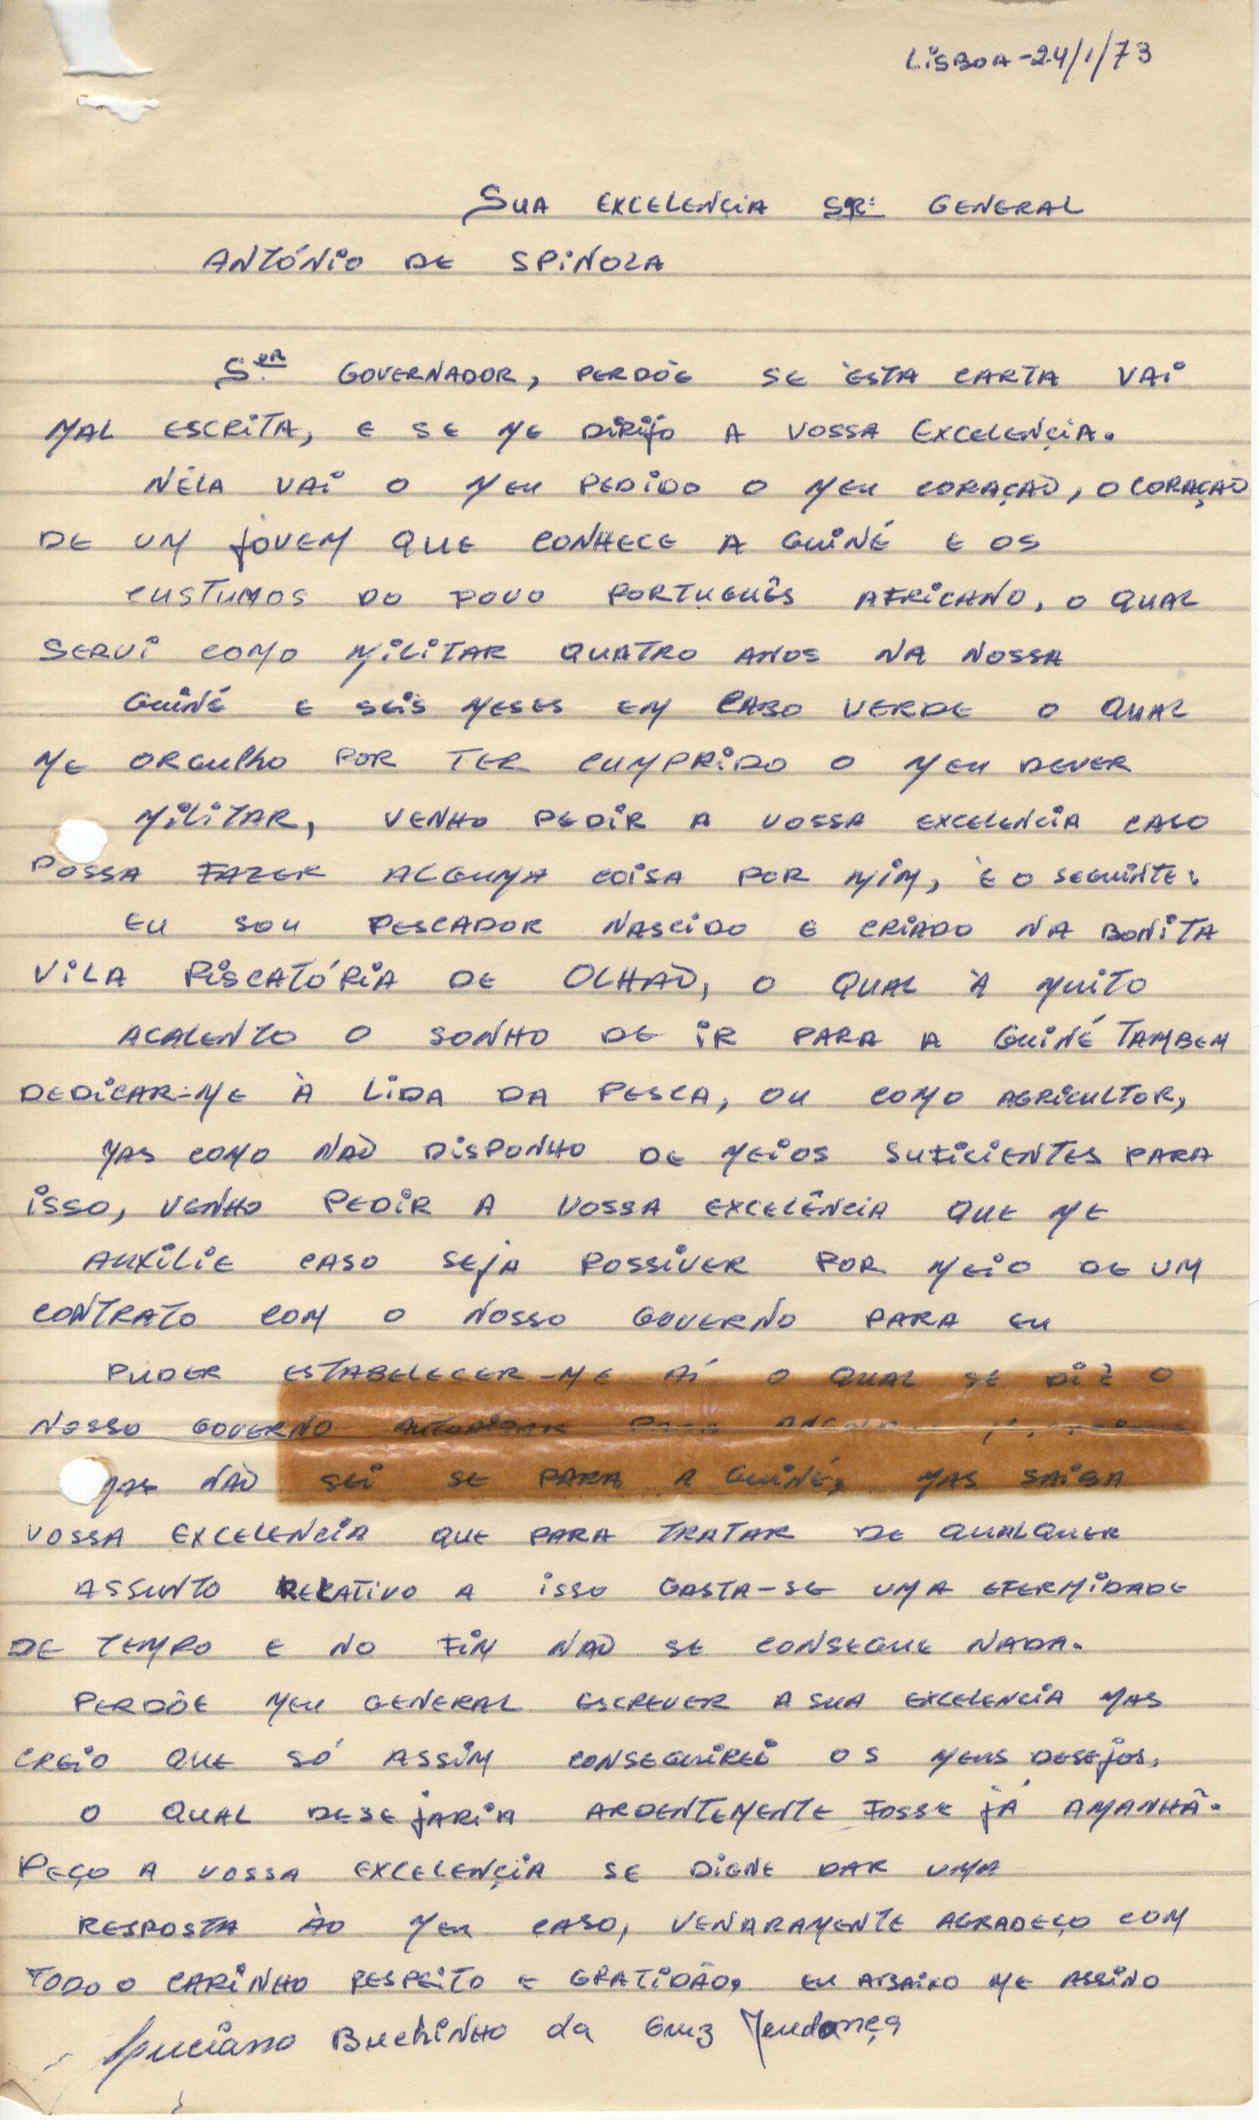 LISBOA - 24/1/73
SUA EXCELENCIA SR: GENERAL
ANTÓNIO DE SPINOLA
Ser GOVERNADOR, PERDÕE SE ESTA CARTA VAI
MAL ESCRITA, E SE ME DIRIJO A VOSSA EXCELENÇIA.
NÉLA VAI O MEU PEDIDO O MEU CORAÇÃO, O CORAÇÃO
DE UM JOVEM QUE CONHECE A GUINÉ E OS
CUSTUMOS DO POVO PORTUGUÊS AFRICANO, O QUAL
SERVI COMO MILITAR QUATRO ANOS NA NOSSA
GUINÉ E SEIS MESES EM CABO VERDE O QUAL
ME ORGULHO POR TER CUMPRIDO O MEU DEVER
MILITAR, VENHO PEDIR A VOSSA EXCELENCIA CASO
POSSA FAZER ALGUMA COISA POR MIM, É O SEGUINTE:
EU SOU PESCADOR NASCIDO E CRIADO NA BONITA
VILA PISCATÓRIA DE OLHÃO, O QUAL À MUITO
ACALENTO O SONHO DE IR PARA A GUINÉ TAMBEM
DEDICAR-ME À LIDA DA PESCA, OU COMO AGRICULTOR,
MAS COMO NÃO DISPONHO DE MEIOS SUFICIENTES PARA
ISSO, VENHO PEDIR A VOSSA EXCELÊNCIA QUE ME
AUXILIE CASO SEJA POSSIVER POR MEIO DE UM
CONTRATO COM O NOSSO GOVERNO PARA EU
PUDER ESTABELECER-ME AÍ O QUAL SE DIZ O
NOSSO GOVERNO AUTORIZAR PARA ANGOLA
MAS NÃO SEI SE PARA A GUINÉ, MAS SAIBA
VOSSA EXCELENCIA QUE PARA TRATAR DE QUALQUER
ASSUNTO RELATIVO A ISSO GASTA-SE UMA EFERMIDADE
DE TEMPO E NO FIM NÃO SE CONSEGUE NADA.
PERDÕE MEU GENERAL ESCREVER A SUA EXCELENCIA MAS
CREIO QUE SÓ ASSIM CONSEGUIREI OS MEUS DESEJOS,
O QUAL DESEJARIA ARDENTEMENTE FOSSE JÁ AMANHÃ.
PEÇO A VOSSA EXCELENÇIA SE DIGNE DAR UMA
RESPOSTA ÀO MEU CASO, VENARAMENTE AGRADEÇO COM
TODO O CARINHO RESPEITO E GRATIDÃO, EU ABAIXO ME ASSINO
Luciano Buchinho da Cruz Mendonça